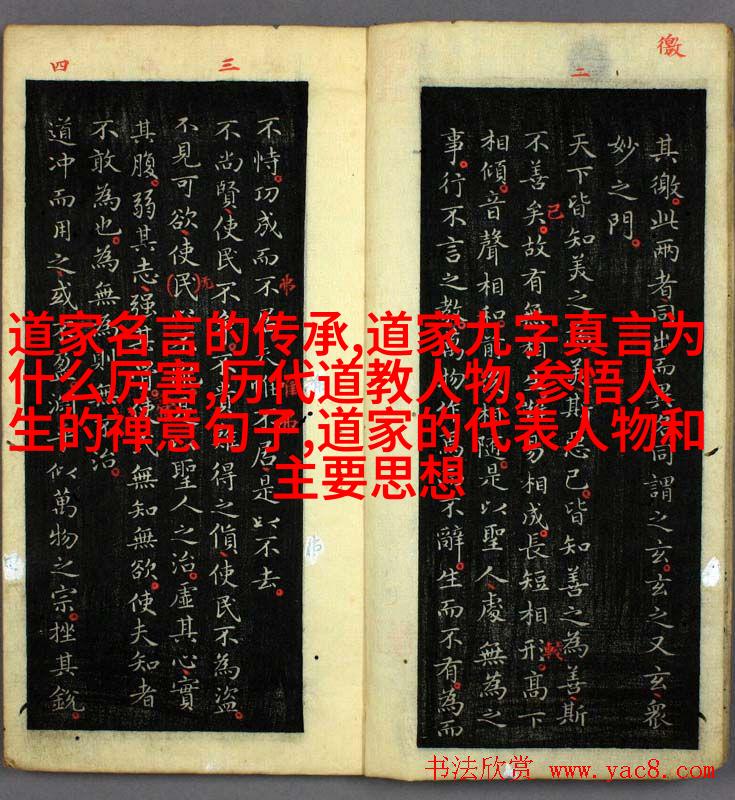 道家名言的传承,道家九字真言为
什么厉害,历代道教人物,参悟人
生的禅意句子,道家的代表人物和
主要思想
徼
二
其徼。此兩者同出而異同謂之玄。玄之又玄。眾
妙之門。
天下皆知美之美斯惡已。皆知善之為善斯
不善矣。故有無相易相成。長短相形。高下
已
較
相傾。音聲相和相隨。是以聖人處無為之
事。行不言之教。萬物作不辭。生而不有。為而
三
四
不恃。功成而不居不居。是以不去。
不尚賢。使民不貴難得之貨。使民不為盜。
不見可欲。使民聖人之治。虛其心。實
无
其腹。弱其志。強其民無知無欲。使夫知者
不敢為也。為無為則治。
道冲而用之。或淵乎似萬物之宗。挫其銳。
书法欣赏 www.yac8.com